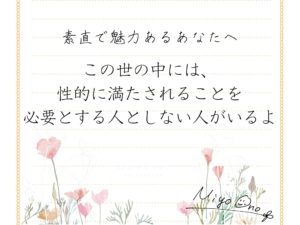 素直で魅力あるあなたへ
この世の中には、
性的に満たされることを
必要とする人としない人がいるよ
Miyo Ono